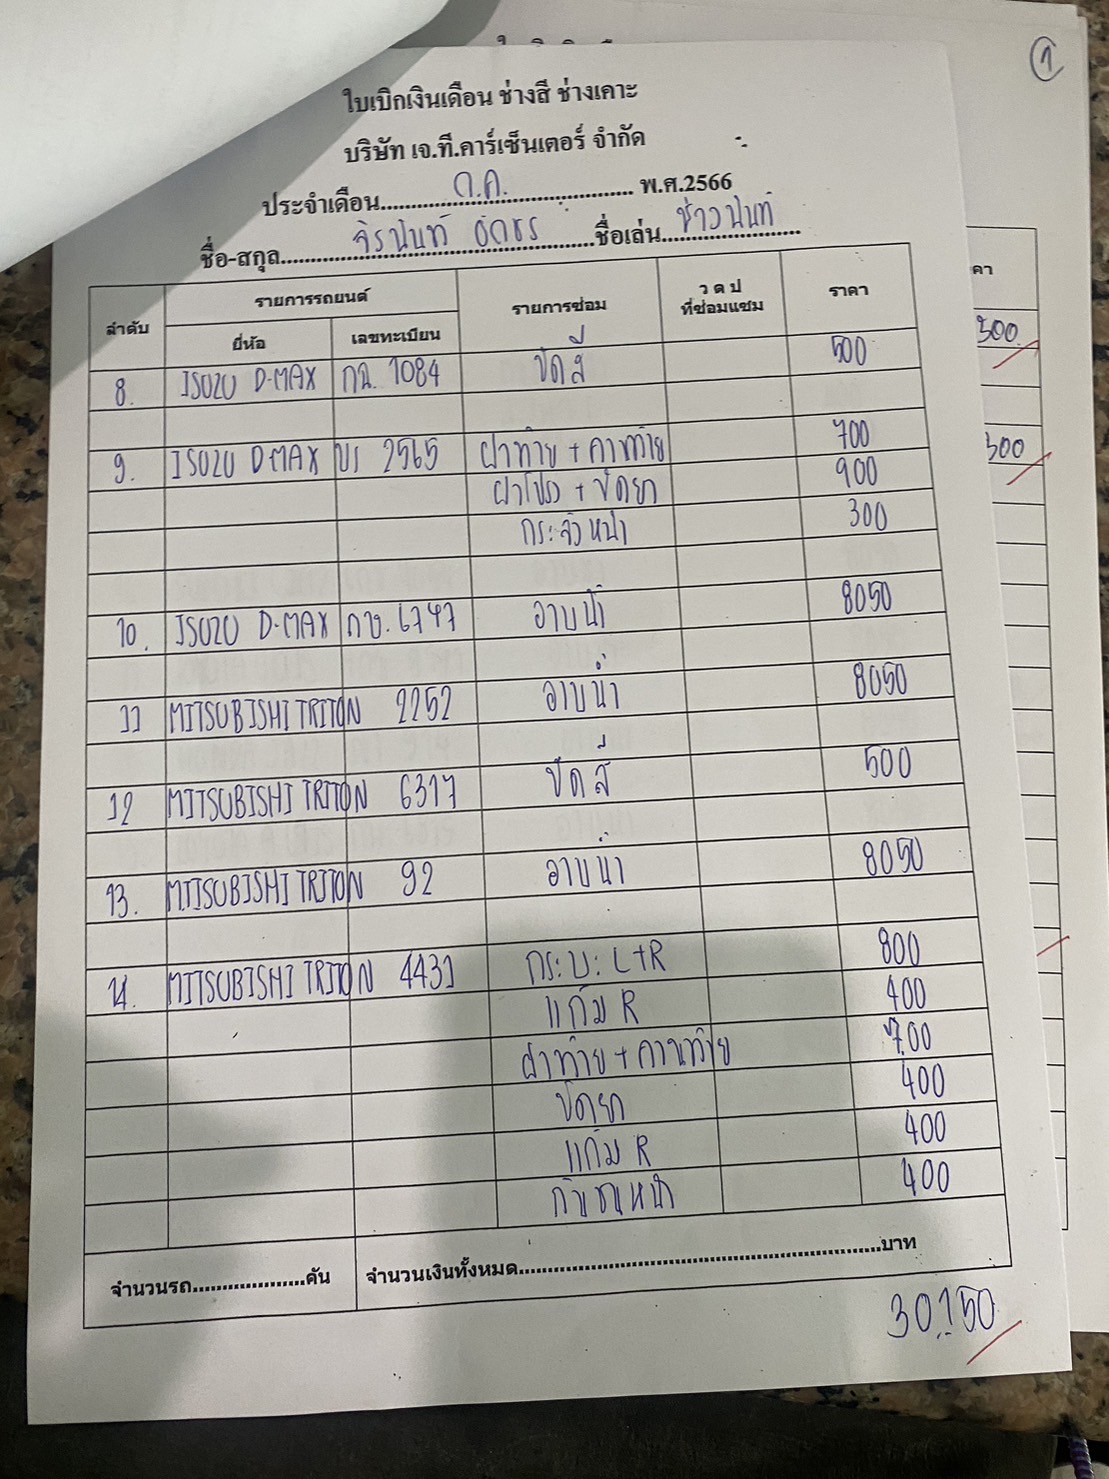 1
ใบเบิกเงินเดือน ช่างสี ช่างเคาะ
บริษัท เจ.ที.คาร์เซ็นเตอร์ จำกัด
ประจำเดือน ก.ค. พ.ศ.2566
ชื่อ-สกุล จิรนันท์ ชื่อเล่น ช่างนันท์
ลำดับ รายการรถยนต์ รายการซ่อม ว ด ป ที่ซ่อมแซม ราคา
ยี่ห้อ เลขทะเบียน
8. ISUZU D-MAX กฉ. 1084 ขัดสี 500
9. ISUZU D-MAX บร 2565 ฝาท้าย + คานท้าย 700
ฝาโปรง + ขัดยา 900
กระจังหน้า 300
10. ISUZU D-MAX กข. 6747 อาบน้ำ 8050
11 MITSUBISHI TRITON 2252 อาบน้ำ 8050
12 MITSUBISHI TRITON 6317 ขัดสี 500
13. MITSUBISHI TRITON 92 อาบน้ำ 8050
14. MITSUBISHI TRITON 4431 กระบะ L+R 800
แก้ม R 400
ฝาท้าย + คานท้าย 700
ขัดยา 400
แก้ม R 400
กันชนหน้า 400
จำนวนรถ....................คัน จำนวนเงินทั้งหมด....................บาท
30,150
คา
300
300